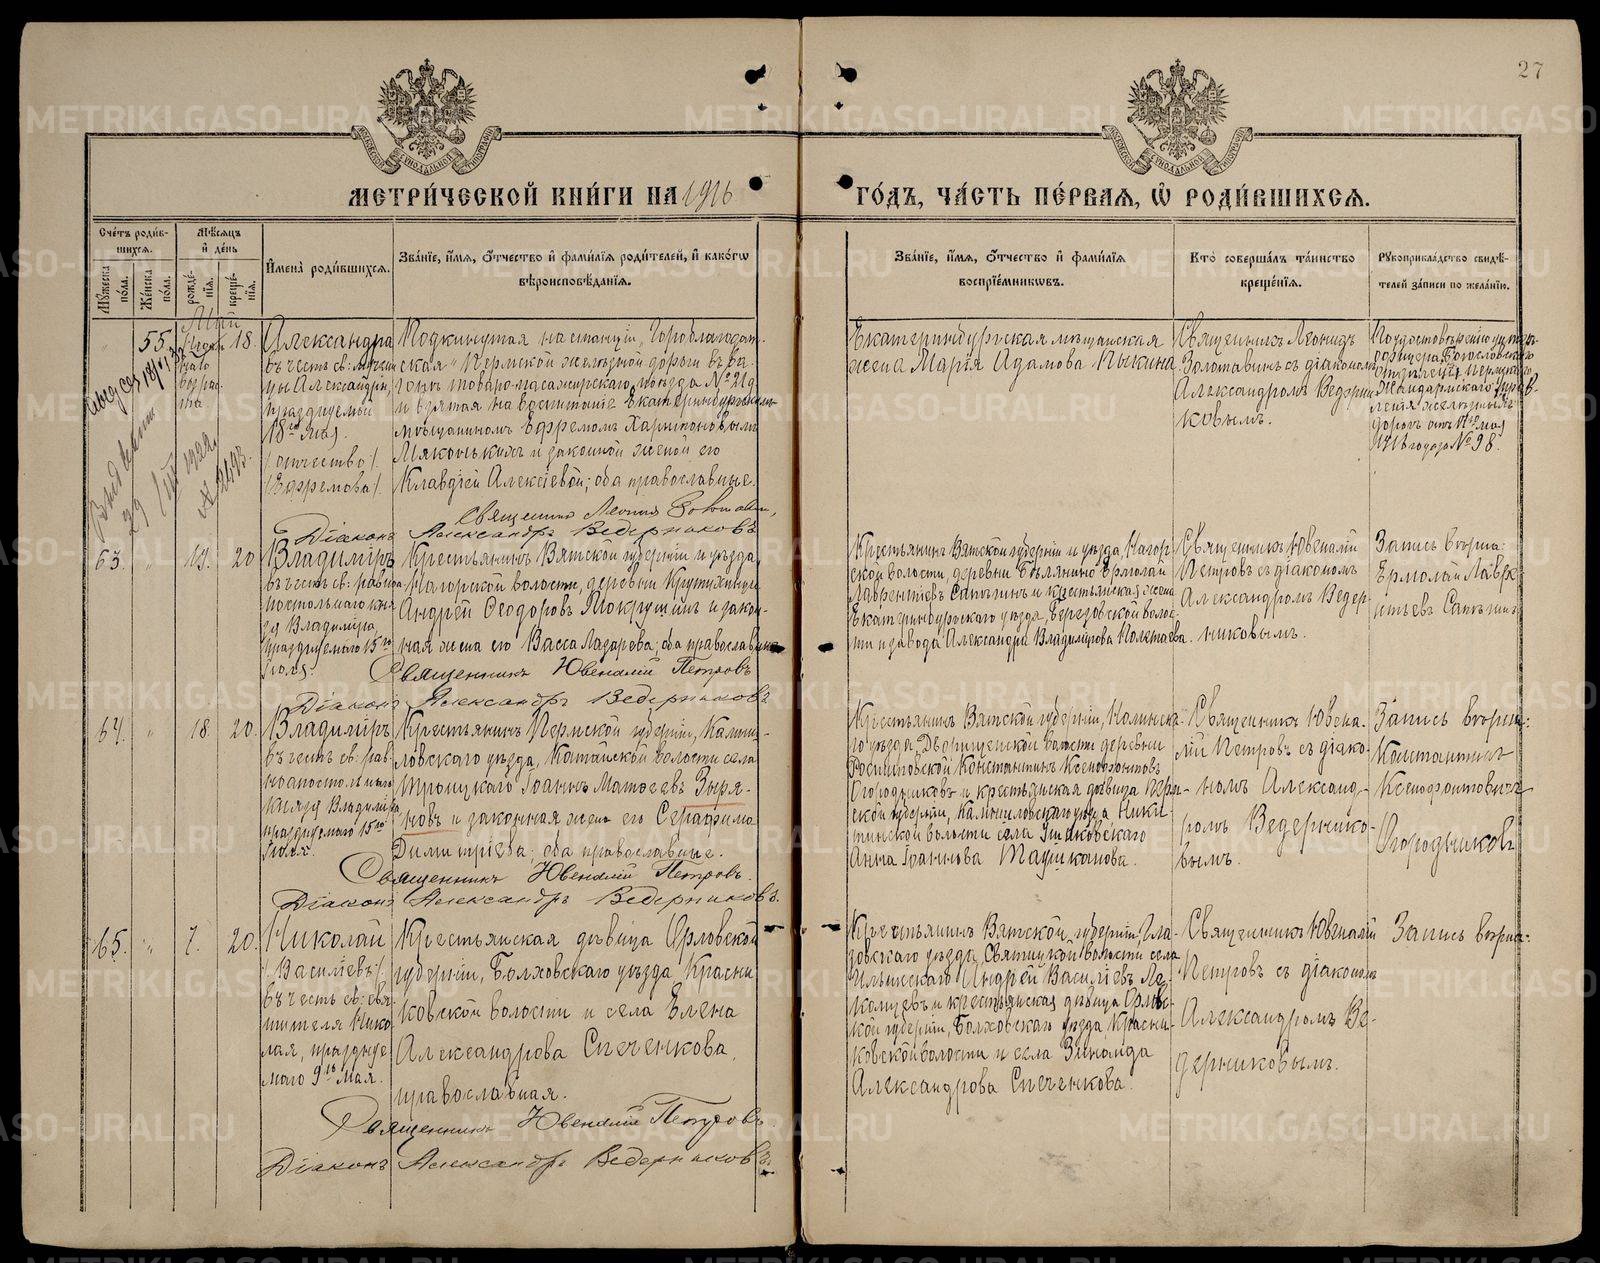 27
МЕТРИ́ЧЕСКОЙ КНИ́ГИ НА 1916
ГО́ДЪ, ЧА́СТЬ ПЕ́РВАЯ, Ѡ РОДИ́ВШИХСЯ.
Сче́тъ роди́в-
шихся.
Му́жеска по́ла.
Же́нска по́ла.
Мѣ́сяцъ
и де́нь
рожде́-
нія.
креще́-
нія.
И́мена роди́вшихся.
Зва́ніе, и́мя, о́тчество и фами́лія роди́телей, и како́гѡ
вѣроисповѣ́данія.
Зва́ніе, и́мя, о́тчество и фами́лія
воспріе́мниковъ.
Кто̀ соверша́лъ та́инство
креще́нія.
Рукоприкла́дство свидѣ́-
телей за́писи по жела́нію.
55.
Май
18.
Александра
въ честь св: мучени
цы Александры,
празднуемой
18го мая.
/отчество/.
/Ефремова/.
Подкинутая на станціи „Гороблагодат-
ская" Пермской желѣзной дороги въ ва-
гонѣ товаро-пасажирскаго поѣзда № 21 д
и взятая на воспитаніе Екатеринбургскимъ
мѣщаниномъ Ефремомъ Харитоновымъ
Мякоńкихъ и законной женой его
Клавдіей Алексіевой; оба православные.
Священникъ Леонидъ Золотавинъ,
Діаконъ Александръ Ведерниковъ
Екатеринбургская мѣщанская
жена Марія Адамова Пыкина
Священникъ Леонидъ
Золотавинъ съ діакономъ
Александромъ Ведерни
ковымъ.
По удостовѣренію унтеръ-
офицера Богословскаго
отдѣленія Пермскаго
Жандармскаго Управ-
ленія желѣзныхъ
дорогъ отъ мая
1916 года за № 98.
63.
„
19.
20
Владиміръ
въ честь св: равно
апостольнаго кня
зя Владиміра,
празднуемаго 15го
іюля.
Крестьянинъ Вятской губерніи и уѣзда,
Нагорской волости, деревни Крутихинцы
Андрей Ѳеодоровъ Мокрушинъ и закон-
ная жена его Васса Лазарева; оба православные
Священникъ Ювеналій Петровъ
Діаконъ Александръ Ведерниковъ
Крестьянинъ Вятской губерніи и уѣзда, Нагор
ской волости, деревни Ермолай
Лаврентіевъ и крестьянская жена
Екатеринбургскаго уѣзда, Березовской волос
ти и завода Александра Владимірова Полетаева.
Священникъ Ювеналій
Петровъ съ діакономъ
Александромъ Ведер
никовымъ.
Запись вѣрна:
Ермолай Лавре
нтьевъ
64.
„
18.
20.
Владиміръ
въ честь св: рав
ноапостольнаго
Князя Владиміра
празднуемаго 15го
Іюля.
Крестьянинъ Пермской губерніи, Камыш-
ловскаго уѣзда, волости села
Троицкаго Іоаннъ Матѳеевъ Зыря-
новъ и законная жена его Серафима
Димитріева; оба православные.
Священникъ Ювеналій Петровъ.
Діаконъ Александръ Ведерниковъ.
Крестьянинъ Вятской губерніи, Нолинска-
го уѣзда, волости деревни
Константинъ Ксенофонтовъ
Огородниковъ и крестьянская дѣвица Перм-
ской губерніи, Камышловскаго уѣзда Ники-
тинской волости села
Анна Іоаннова Ташканова.
Священникъ Ювена-
лій Петровъ съ діако-
номъ Александ-
ромъ Ведернико-
вымъ.
Запись вѣрна:
Константинъ
Ксенофонтовичъ
Огородниковъ
65.
„
7.
20.
Николай
/Василіевъ/.
въ честь св: свя-
тителя Нико
лая, празднуе
маго 9го Мая.
Крестьянская дѣвица Орловской
губерніи, Болховскаго уѣзда Красни
ковской волости и села Елена
Александрова Спеченкова,
православная.
Священникъ Ювеналій Петровъ.
Діаконъ Александръ Ведерниковъ.
Крестьянинъ Вятской губерніи Гла-
зовскаго уѣзда, Святицкой волости села
Ильинскаго Андрей Василіевъ
и крестьянская дѣвица Орлов-
ской губерніи, Болховскаго уѣзда Красни-
ковской волости и села Зинаида
Александрова Спеченкова.
Священникъ Ювеналій
Петровъ съ діакономъ
Александромъ Ве-
дерниковымъ.
Запись вѣрна:
METRIKI.GASO-URAL.RU